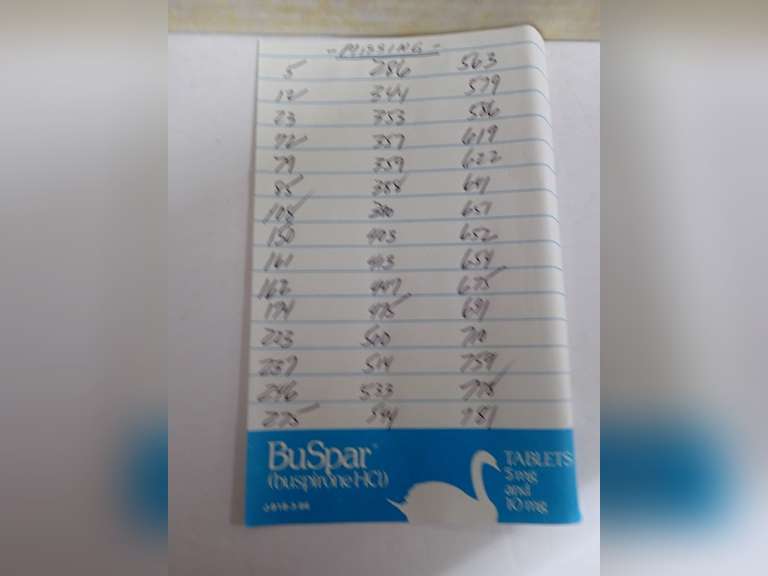 - MISSING -
5 286 563
12 344 579
23 353 586
72 357 619
79 359 622
85 388 641
380 651
150 403 652
161 413 654
162 447 675
174 475 691
223 500 710
237 514 759
246 533 775
275 544 781
BuSpar
(buspirone HCl)
TABLETS
5 mg
and
10 mg